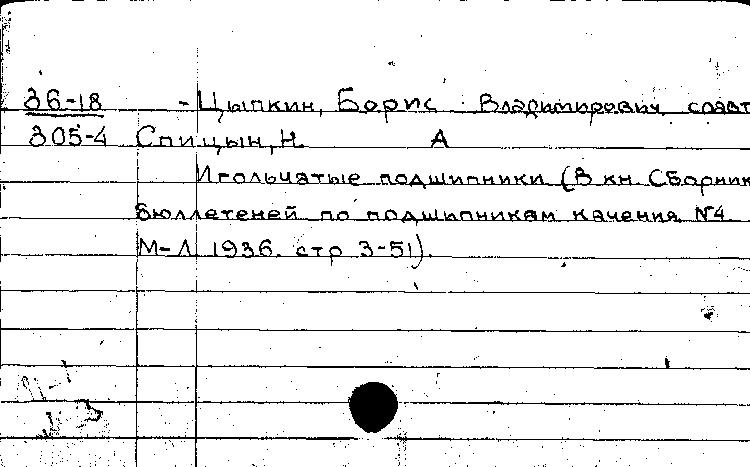 36-18 - Цыпкин, Борис Владимирович, соавт
305-4 Спицын, Н. А
Игольчатые подшипники (В кн. Сборник
бюллетеней по подшипникам качения №4
М-Л 1936. стр 3-51).